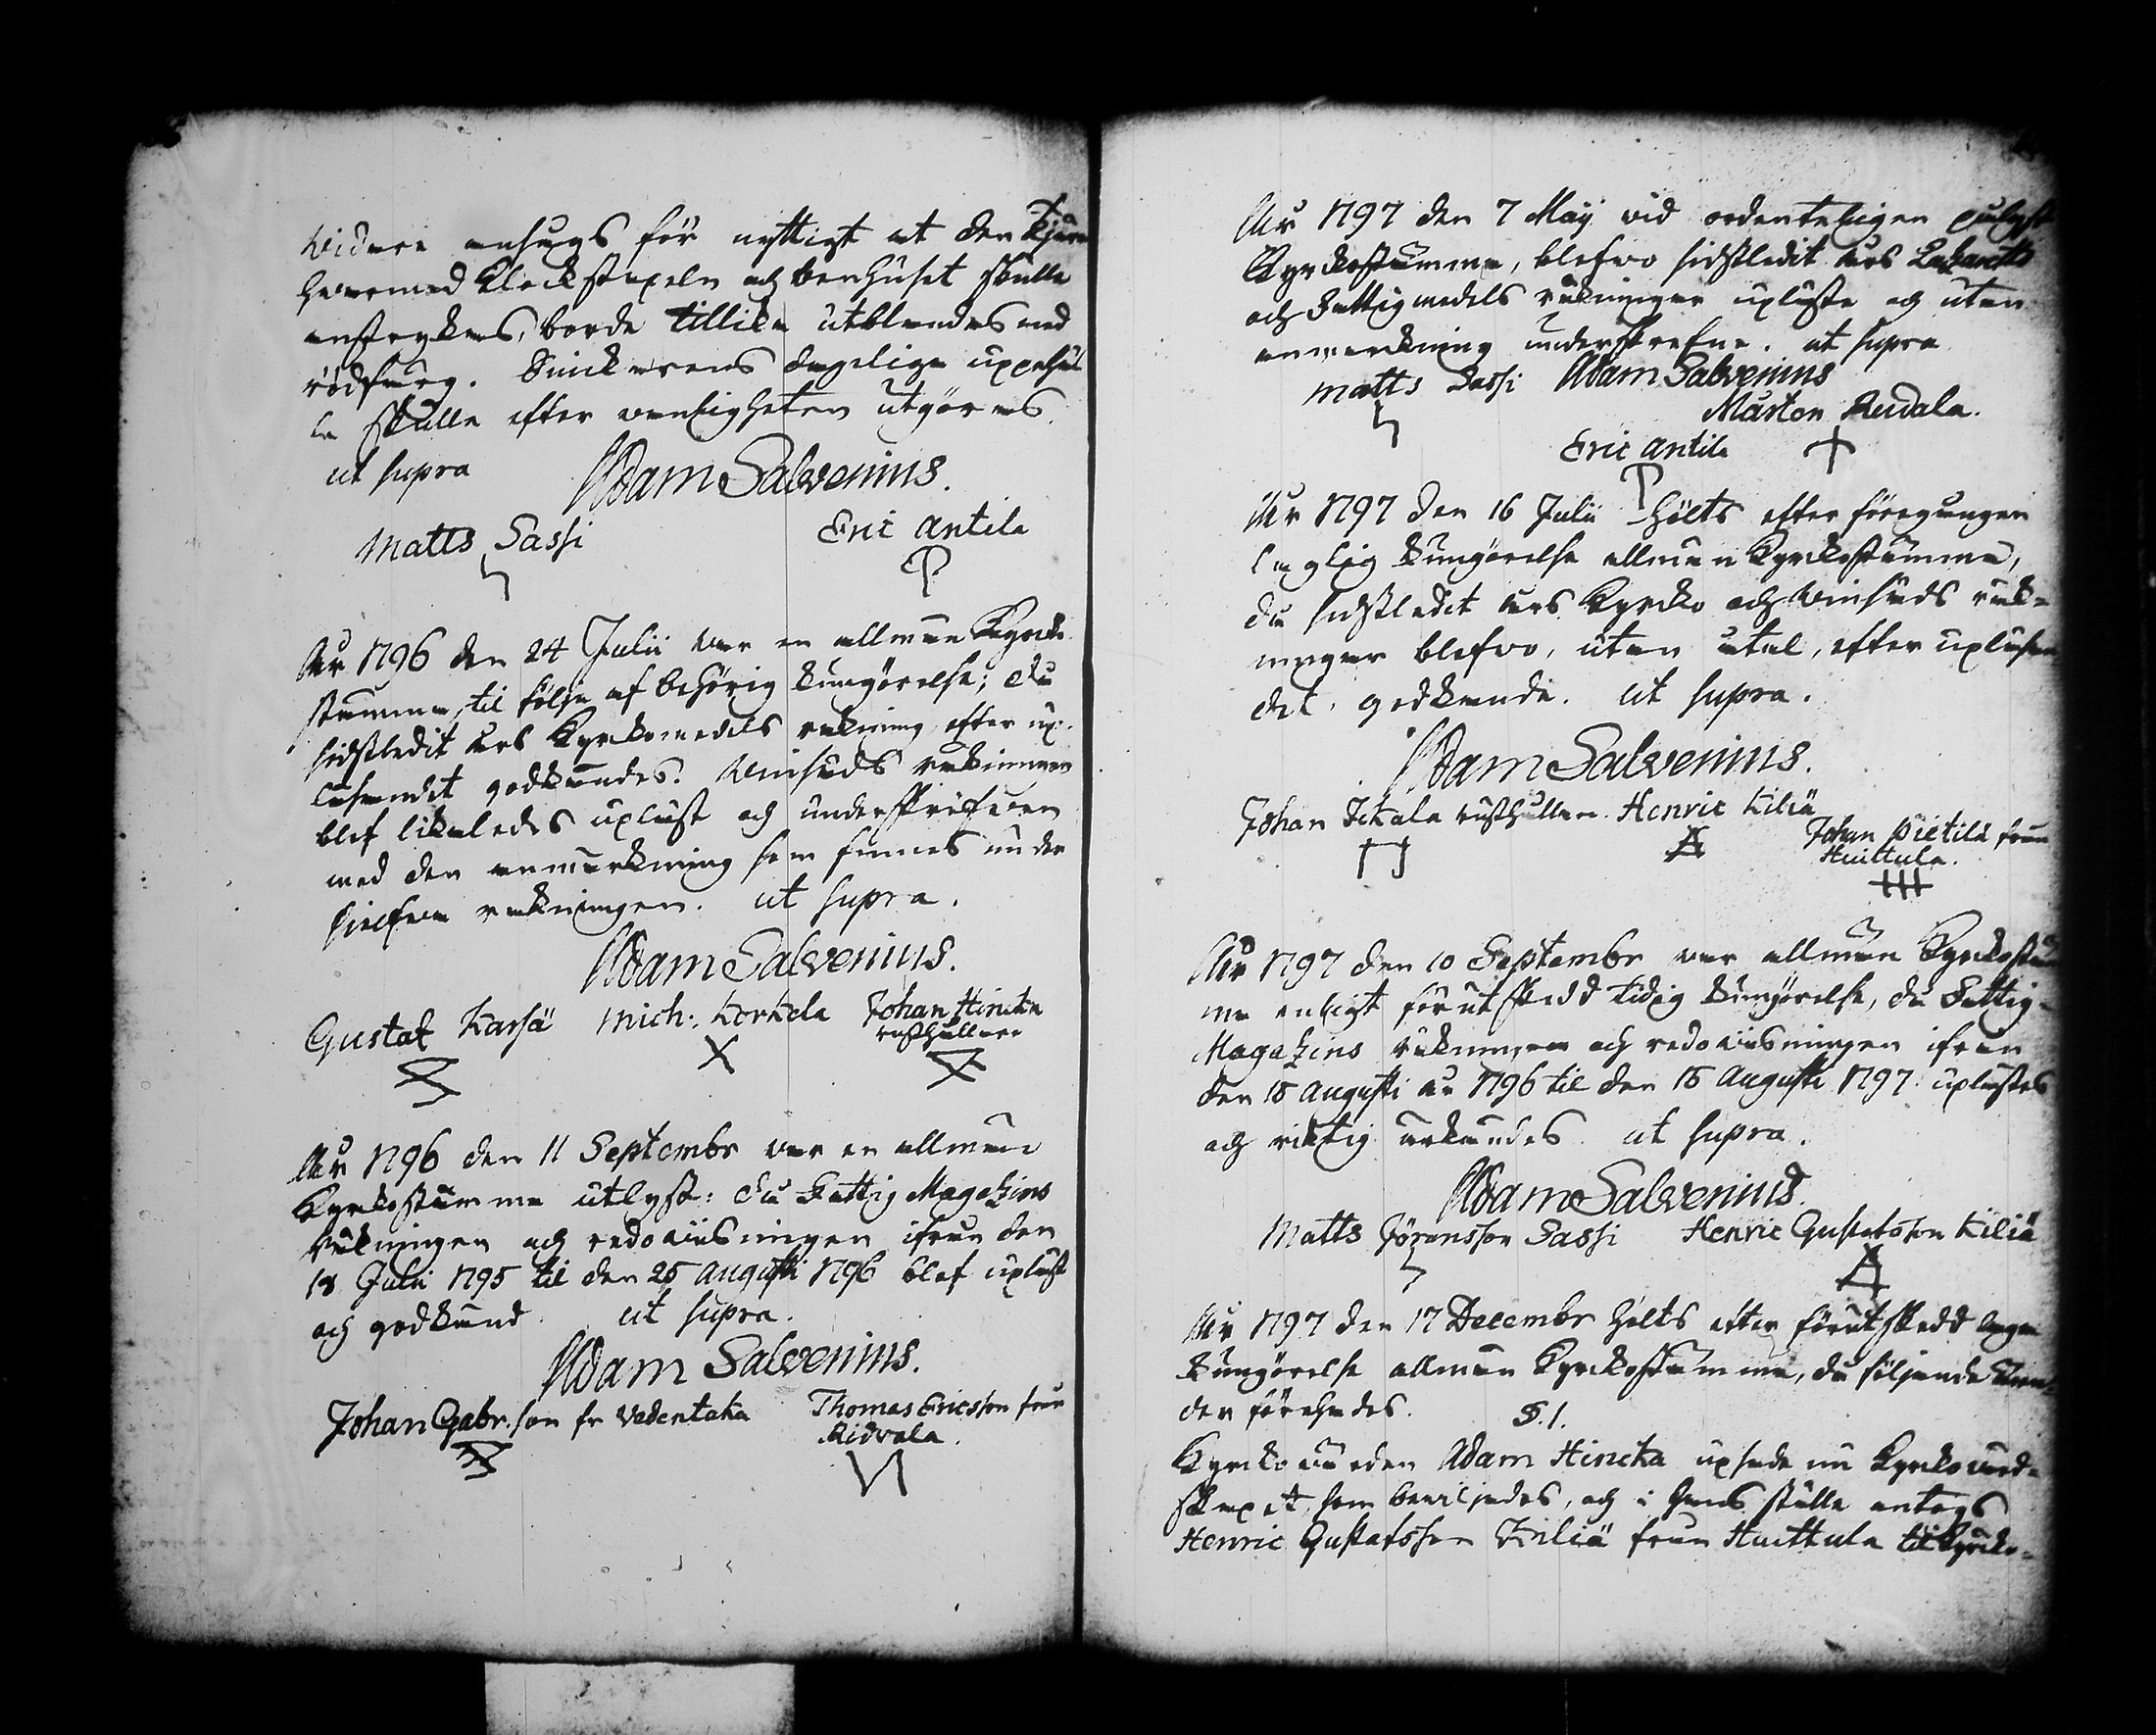 widare ansågs för nyttigt at den tjära
hvarmed Klockstapeln och benhuset skulle
anstrykas, borde tillika utblandas med
rödfärg. Snickarens dageliga uppehäl
le skulle efter vanligheten utgöras.
ut supra Adam Salvenius.
Matts Sassi Eric Antila
År 1796 den 24 Julii var en allmän Kyrcko
stämma, til följe af behörig kungörelse; då
sidstledit års Kyrckomedels räkning efter up-
läsandet godkändes. Winsäds räkningen
blef likaledes upläst och underskrifven
med den anmärkning som finnes under
sielfva räkningen. ut supra.
Adam Salvenius.
Gustaf Karsä Mich: Korkola Johan Hincka
rusthållare
År 1796 den 11 Septembr var en allmän
Kyrkostämma utlyst: då Fattig Magazins
räkningen och redovisningen ifrån den
18 Julii 1795 til den 25 Augusti 1796 blef upläst
och godkänd. ut supra.
Adam Salvenius.
Johan Gabr.son fr Vedentaka Thomas Ericsson från
Ridvala.
År 1797 den 7 Maji vid ordenteligen pålyst
Kyrckostämma, blefvo sidstledit års Lazaretts
och Fattigmedels räkningar upläste och utan
anmärkning underskrefne. ut supra
Matts Sassi Adam Salvenius
Mårten Reudala.
Eric Antila
År 1797 den 16 Julii hölts efter föregången
laglig kungörelse allmän Kyrckostämma,
då sidstledit års Kyrcko och Winsäds räk-
ningar blefvo, utan åtal, efter upläsan
det, godkände. ut supra.
Adam Salvenius.
Johan Ickala rusthållare. Henric Kiliä
Johan Pietilä från
Huittula.
År 1797 den 10 Septembr var allmän Kyrckostäm
ma enligt förutskedd tidig kungörelse, då Fattig-
Magazins räkningen och redovisningen ifrån
den 18 Augusti år 1796 til den 18 Augusti 1797 uplästes
och riktig erkändes. ut supra.
Adam Salvenius.
Matts Jöransson Sassi Henric Gustafsson Kiliä
År 1797 den 17 Decembr hölts efter förutskedd laga
kungörelse allmän Kyrckostämma, då följande Ären-
der förehades. §.1.
Kyrckovärden Adam Hincka upsade nu Kyrckovärd-
skapet, som beviljades, och i hans ställe antogs
Henric Gustafsson Kiliä från Huittula til Kyrcko-